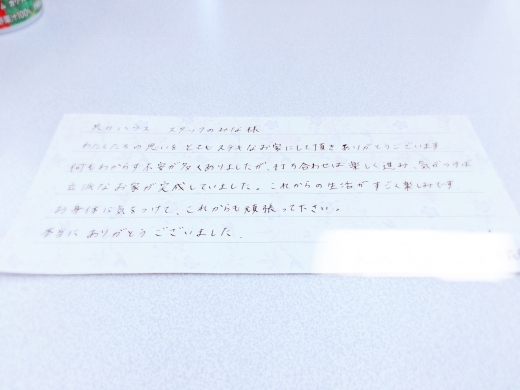 スタッフのみな様
わたしたちの思いをとてもステキなお家にして頂きありがとうございます
何もわからず不安が多くありましたが、打ち合わせは楽しく進み、気がつけば
立派なお家が完成していました。これからの生活がすごく楽しみです
お身体に気をつけて、これからも頑張って下さい。
本当にありがとうございました。